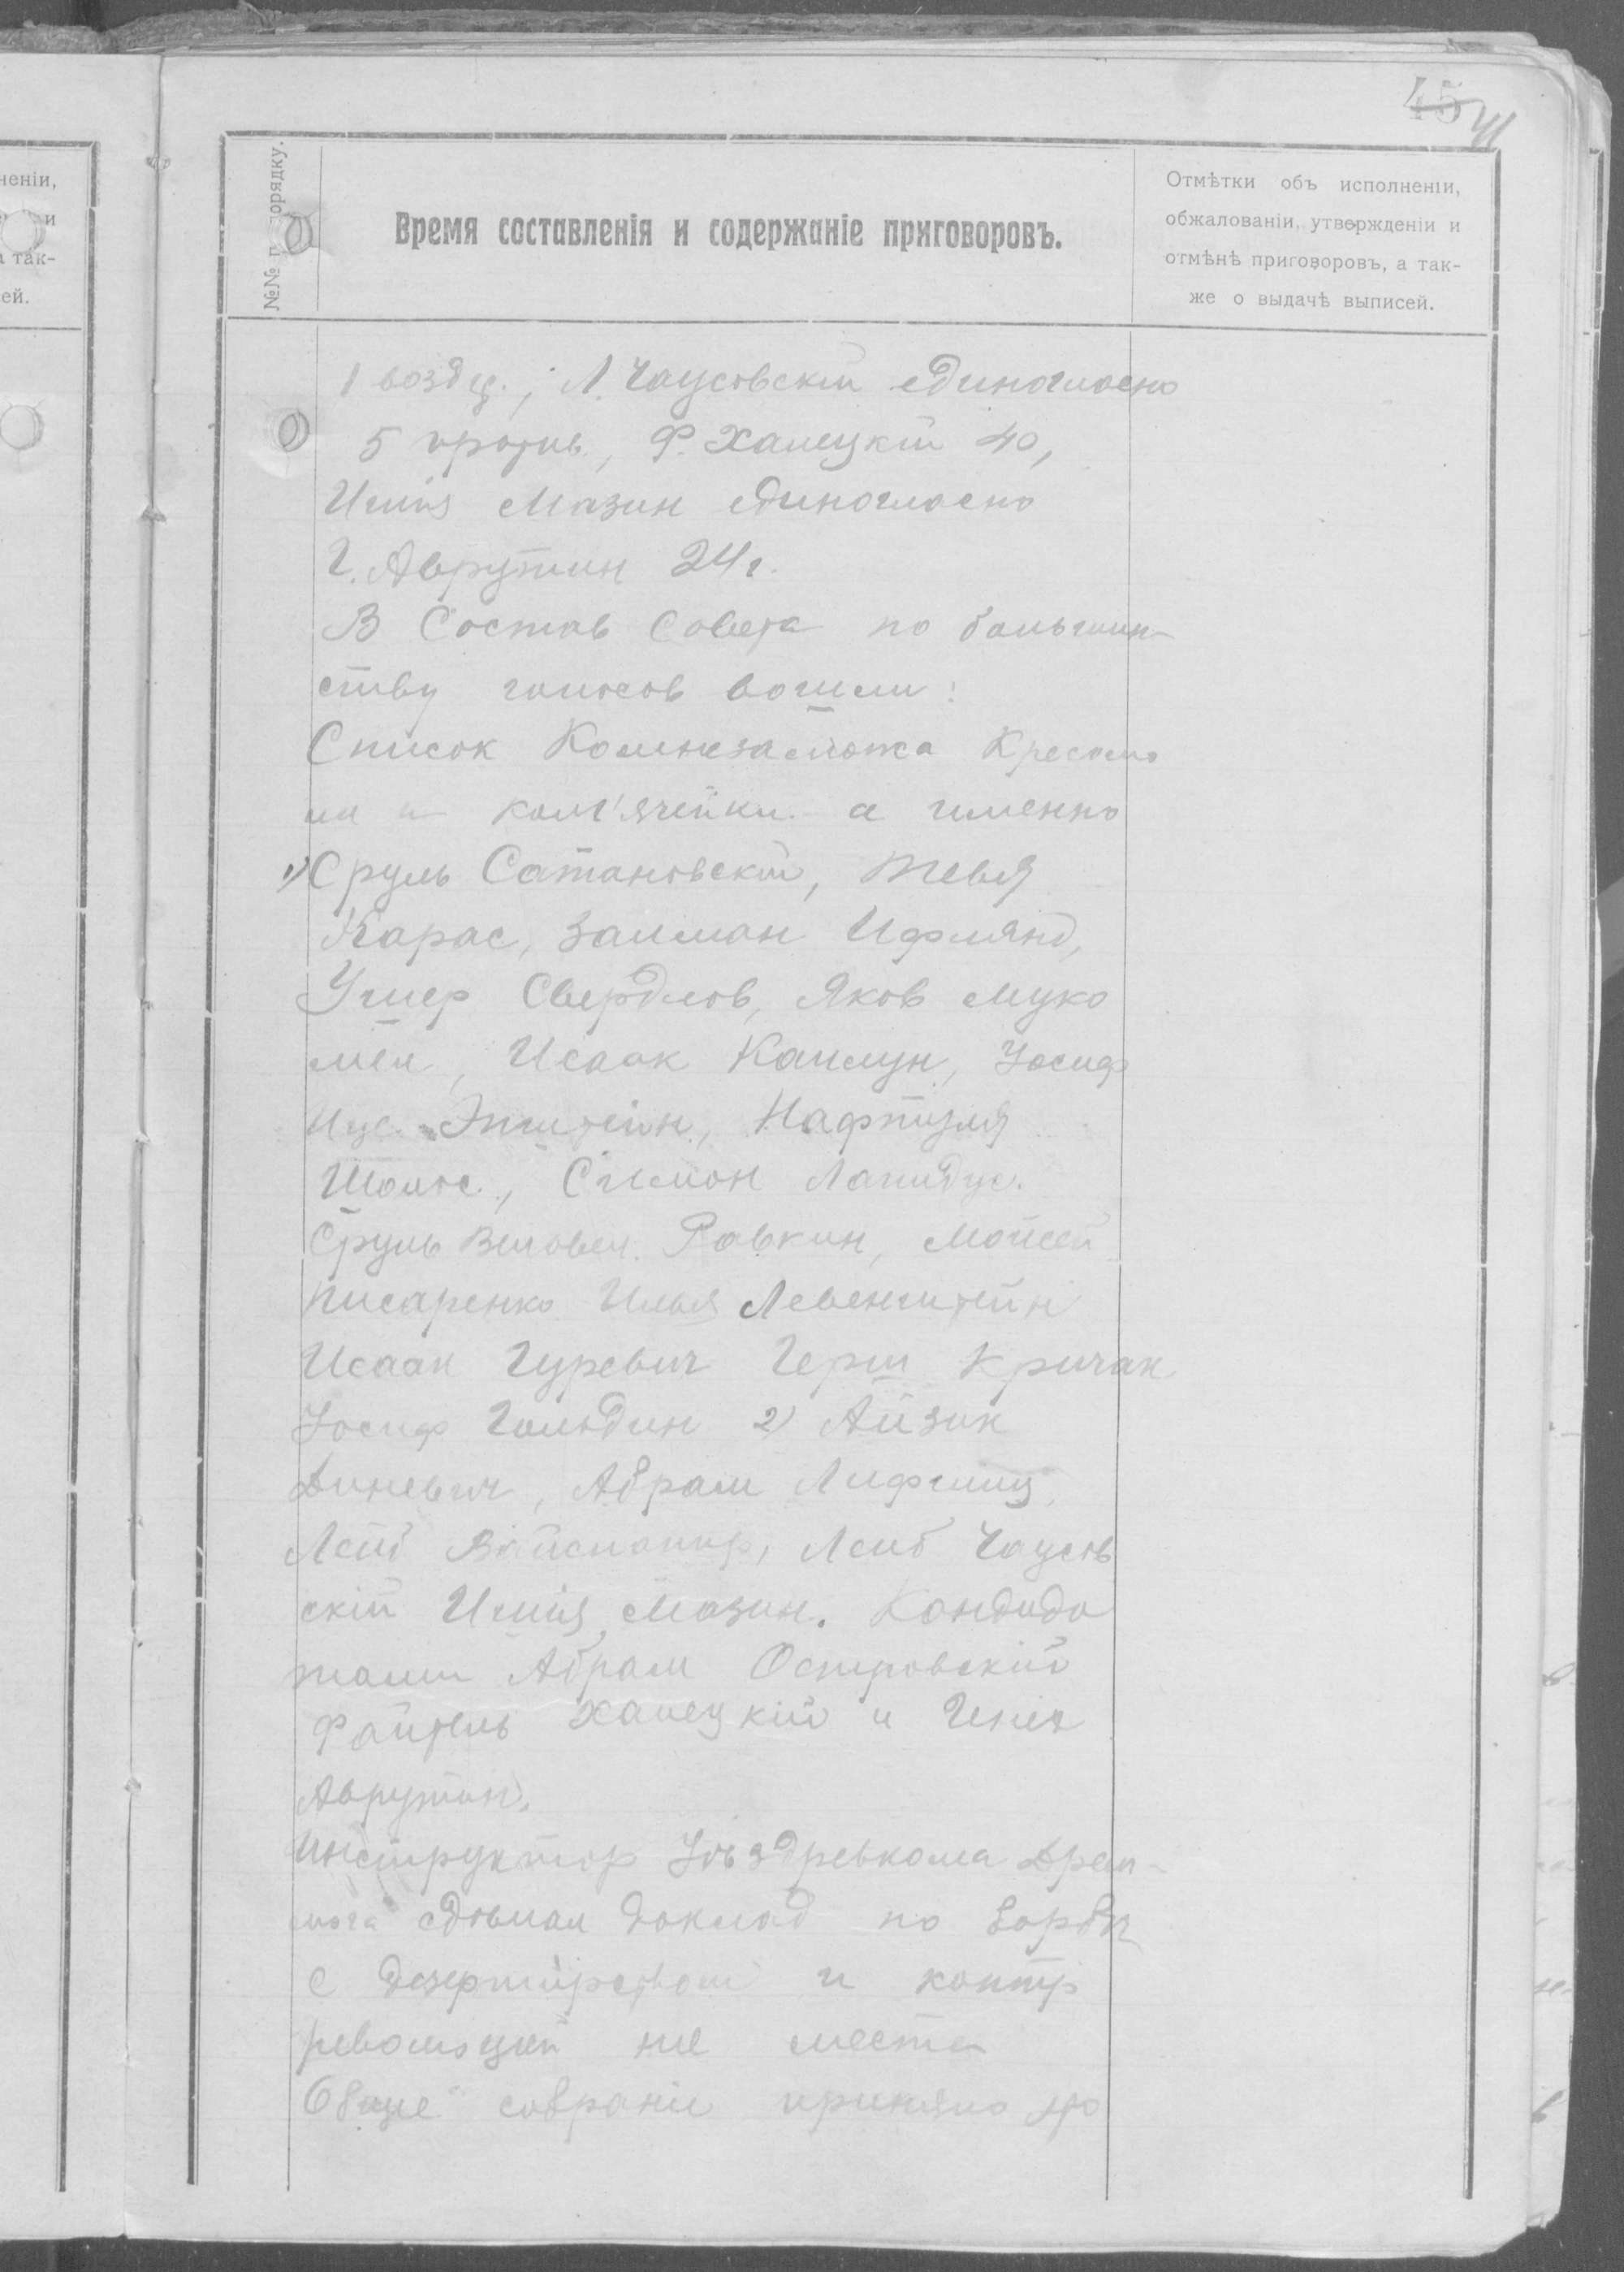 45
41
неніи,
и
а так-
ей.
№№ п порядку.
Время составленія и содержаніе приговоровъ.
Отмѣтки объ исполненіи,
обжалованіи, утвержденіи и
отмѣнѣ приговоровъ, а так-
же о выдачѣ выписей.
1 воздер., Л. Чаусовскій единогласно
5 против, Ф. Халецкій 40,
Илія Мазин единогласно
Г. Аврутин 24 г.
В Состав Совета по большин-
ству голосов вошли:
Список Комнезаможа
и комъячейки а именно
1) Сруль Сатановскій, Тевья
Карас, Залман Ифлянд,
Ушер Свердлов, Яков Муко
мел, Исаак Каплун, Іосиф
Эпштейн, Нафтуля
Шолюс, Симон Лапидус.
Сруль Равкин, Мойсей
Писаренко Илья Левенштейн
Исаак Гуревич Герш Кричак
Іосиф Гольдин 2) Айзик
Диневич, Абрам Лифшиц,
Лейб Вайспапир, Лейб Чаусов
скій Илія Мазин. Кандида
тами Абрам Островскій
Файтель Халецкій и Генех
Аврутин.
Инструктор Уѣздревкома
сдѣлал доклад по борьбѣ
с дезертирством и контр
революціей на места
Общее собраніе приняло